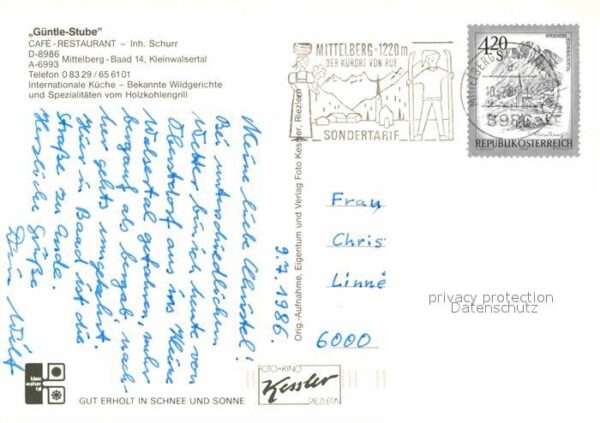 „Güntle-Stube"
CAFÉ-RESTAURANT – Inh. Schurr
D-8986
A-6993 Mittelberg-Baad 14, Kleinwalsertal
Telefon 0 83 29 / 65 61 01
Internationale Küche – Bekannte Wildgerichte
und Spezialitäten vom Holzkohlengrill
MITTELBERG · 1220m
DER KURORT VON RUF
SONDERTARIF
4.20
S
REPUBLIK ÖSTERREICH
Meine liebe Christel!
Bei unterschiedlichem
Wetter bin ich heute von
Oberstdorf aus ins Kleine
Walsertal gefahren, mehr
bergauf als bergab, nach-
her gehts umgekehrt.
Hier in Baad ist die
Straße zu Ende.
Herzliche Grüße
Dein Wilf
9.7.1986.
Orig.-Aufnahme, Eigentum und Verlag Foto Kessler, Riezlern
Frau
Chris
Linné
6000
privacy protection
Datenschutz
klein
walser
tal
GUT ERHOLT IN SCHNEE UND SONNE
FOTO+KINO
Kessler
RIEZLERN